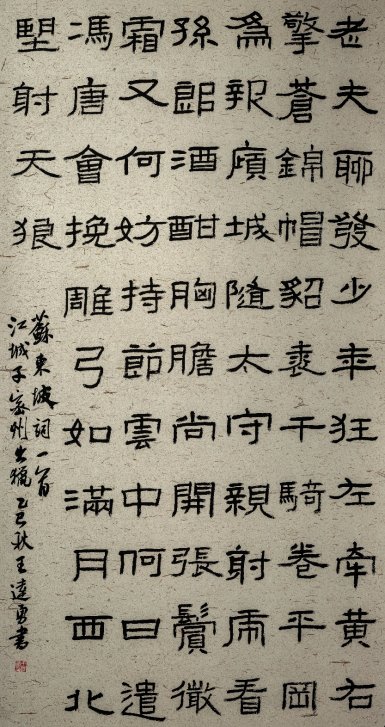 老夫聊發少年狂左牽黃右
擎蒼錦帽貂裘千騎卷平岡
爲報傾城隨太守親射虎看
孫郎酒酣胸膽尚開張鬢微
霜又何妨持節雲中何日遣
馮唐會挽雕弓如滿月西北
望射天狼
蘇東坡詞一首
江城子密州出獵乙巳秋王勇書